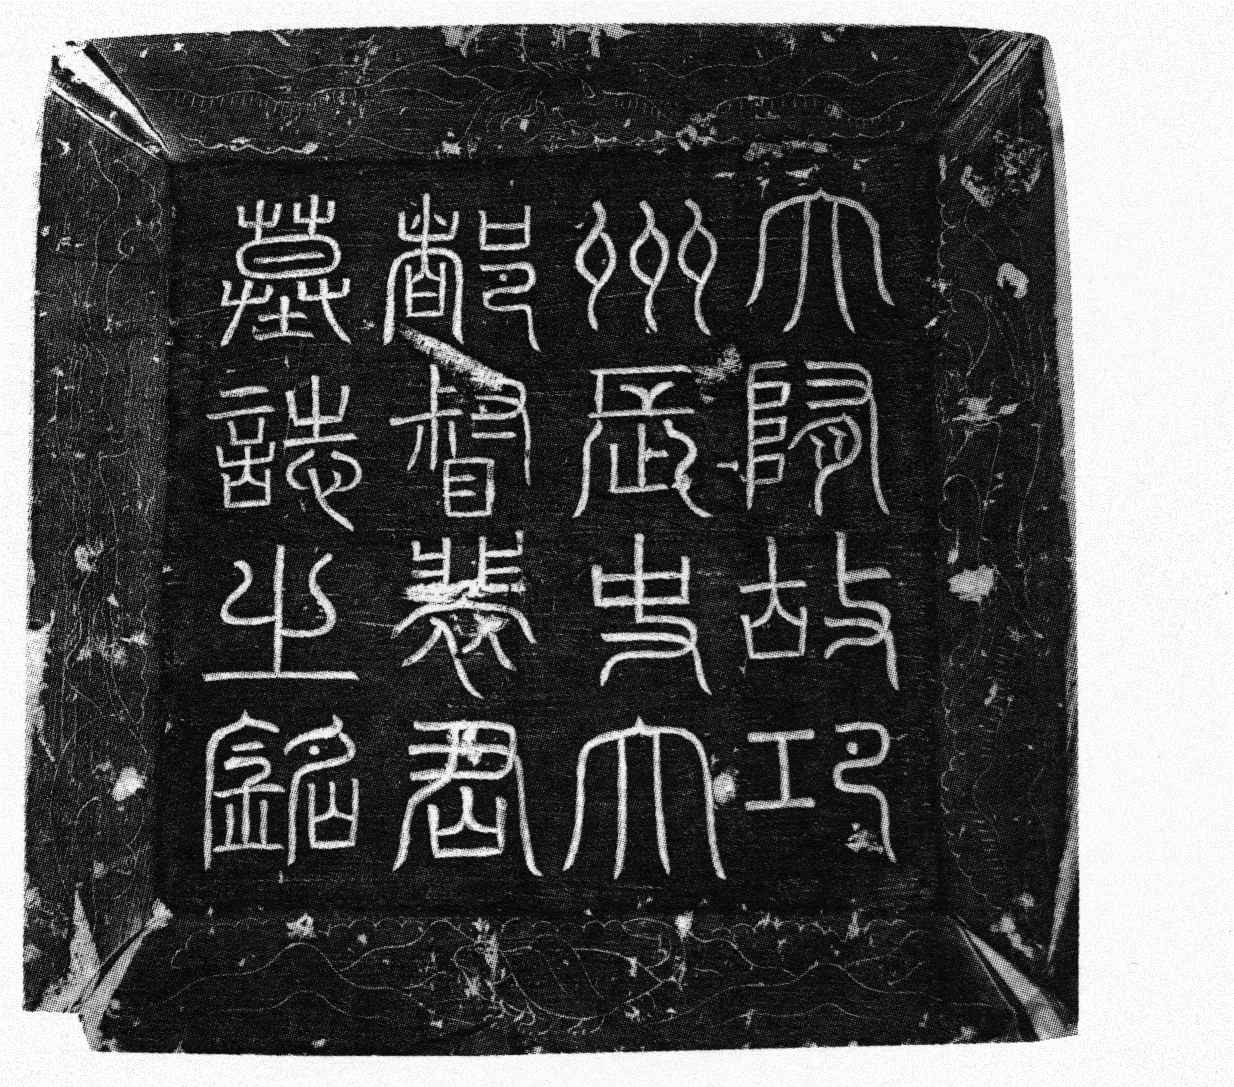 大隋故邛
州長史大
都督裴君
墓誌之銘